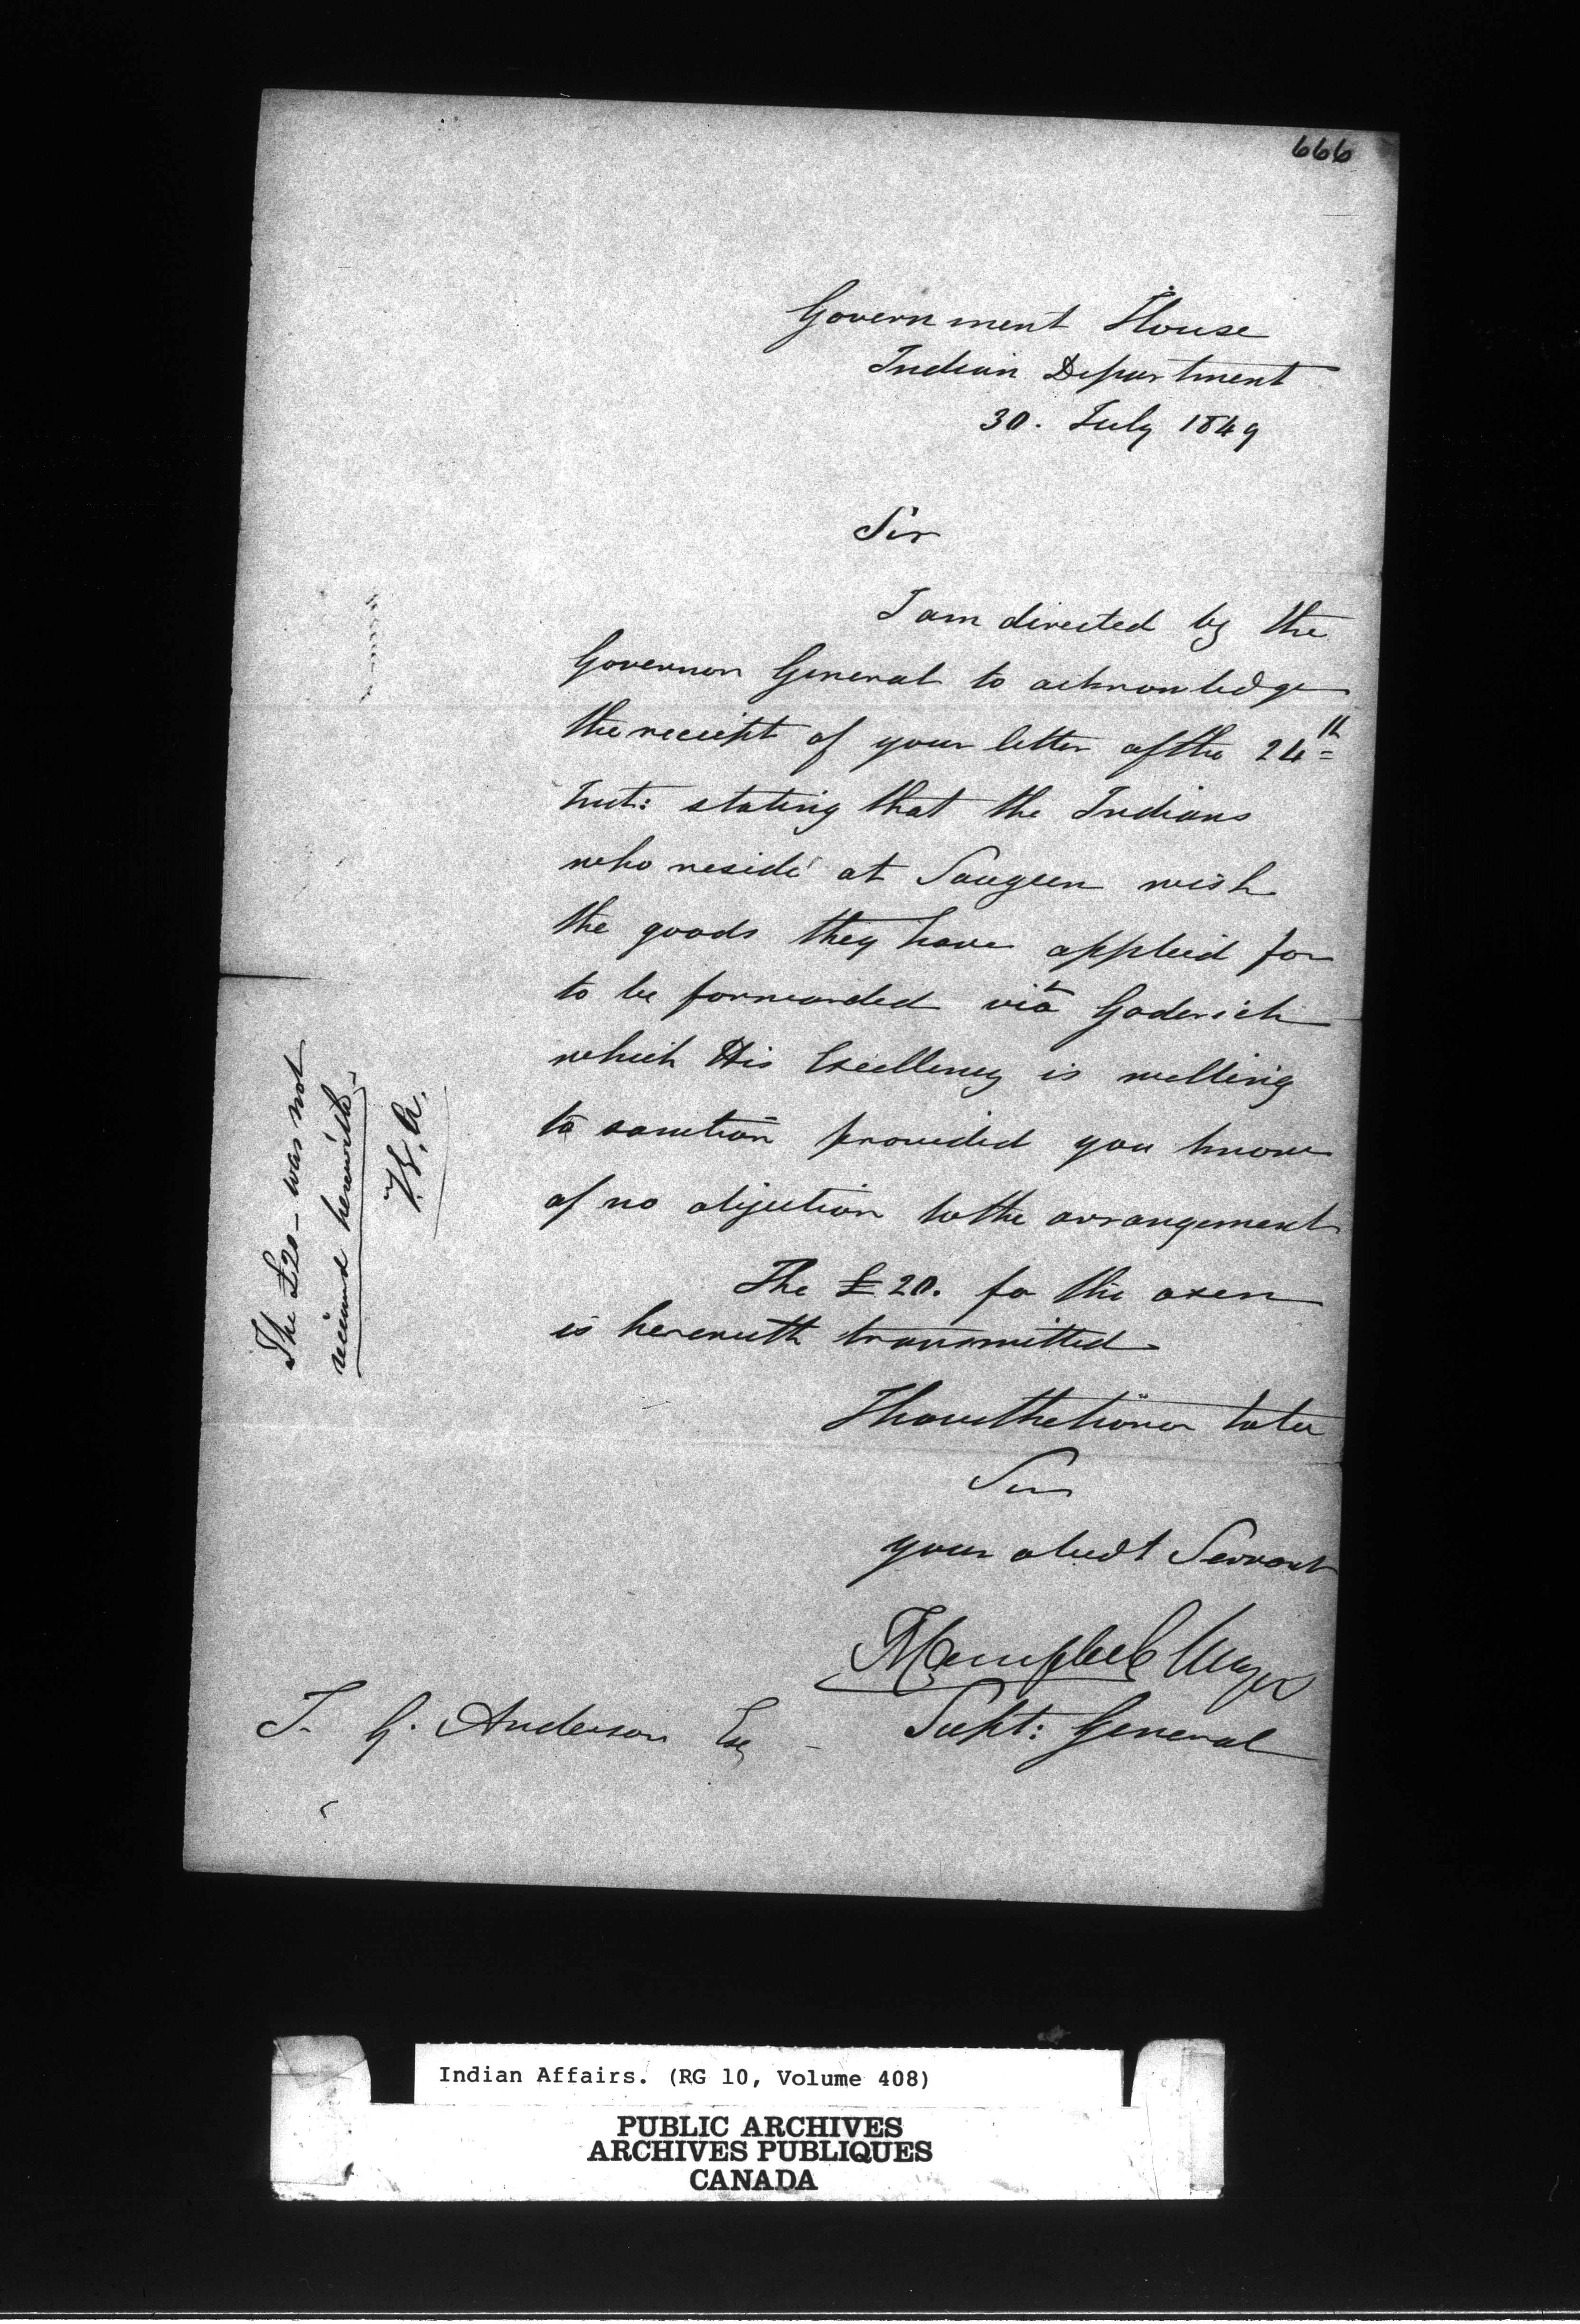 666
Government House
Indian Department
30. July 1849
Sir
I am directed by the
Governor General to acknowledge
the receipt of your letter of the 24th
Inst: stating that the Indians
who reside at Saugeen wish
the goods they have applied for
to be forwarded via Goderich
which His Excellency is willing
to sanction provided you know
of no objection to the arrangement
The £20. for the oxen
is herewith transmitted.
I have the honor to be
Sir
your obedt Servant
TCampbell Major
Supt: General
T. G. Anderson Esq
The £20 - was not
received herewith
T.G.A.
Indian Affairs. (RG 10, Volume 408)
PUBLIC ARCHIVES
ARCHIVES PUBLIQUES
CANADA